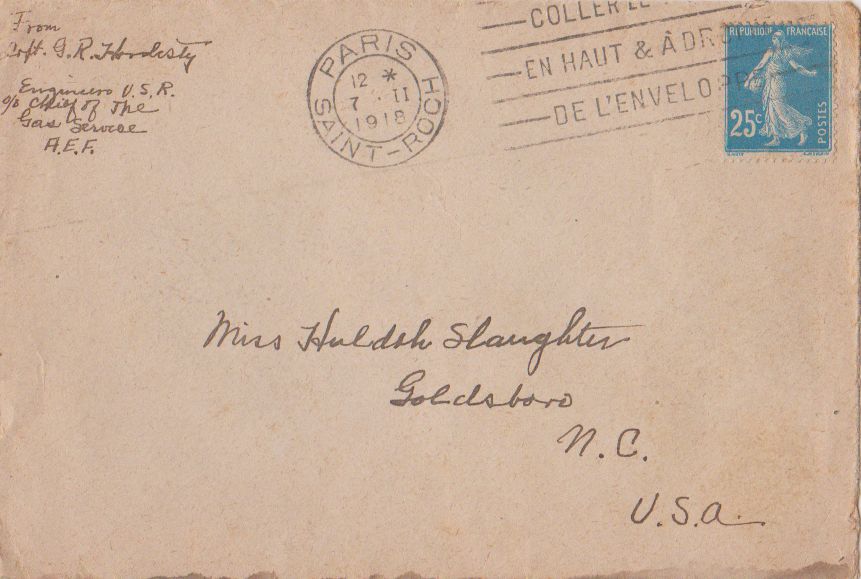 From
Capt. G. R. Hardesty
Engineers U.S.R.
c/o Chief of The
Gas Service
A.E.F.
PARIS
12 *
7 II
1918
SAINT-ROCH
COLLER LE
EN HAUT & À DR
DE L'ENVELOPPE
REPUBLIQUE FRANÇAISE
25c
POSTES
Miss Huldah Slaughter
Goldsboro
N.C.
U.S.A.